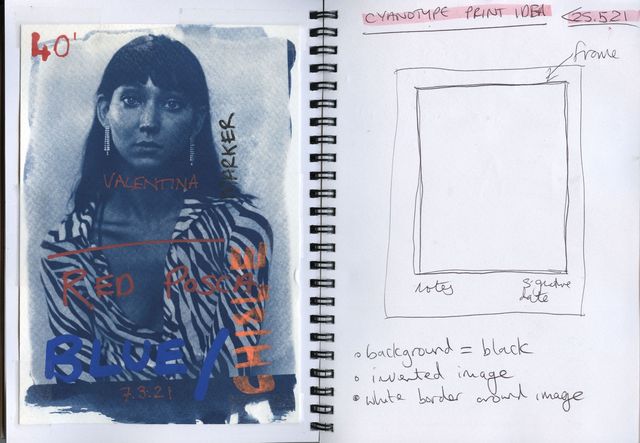 40'
VALENTINA
MARKER
RED POSCA
BLUE/
7.3.21
CYANOTYPE PRINT IDEA 25.5.21
frame
notes
date
background = black
invented image
white border around image